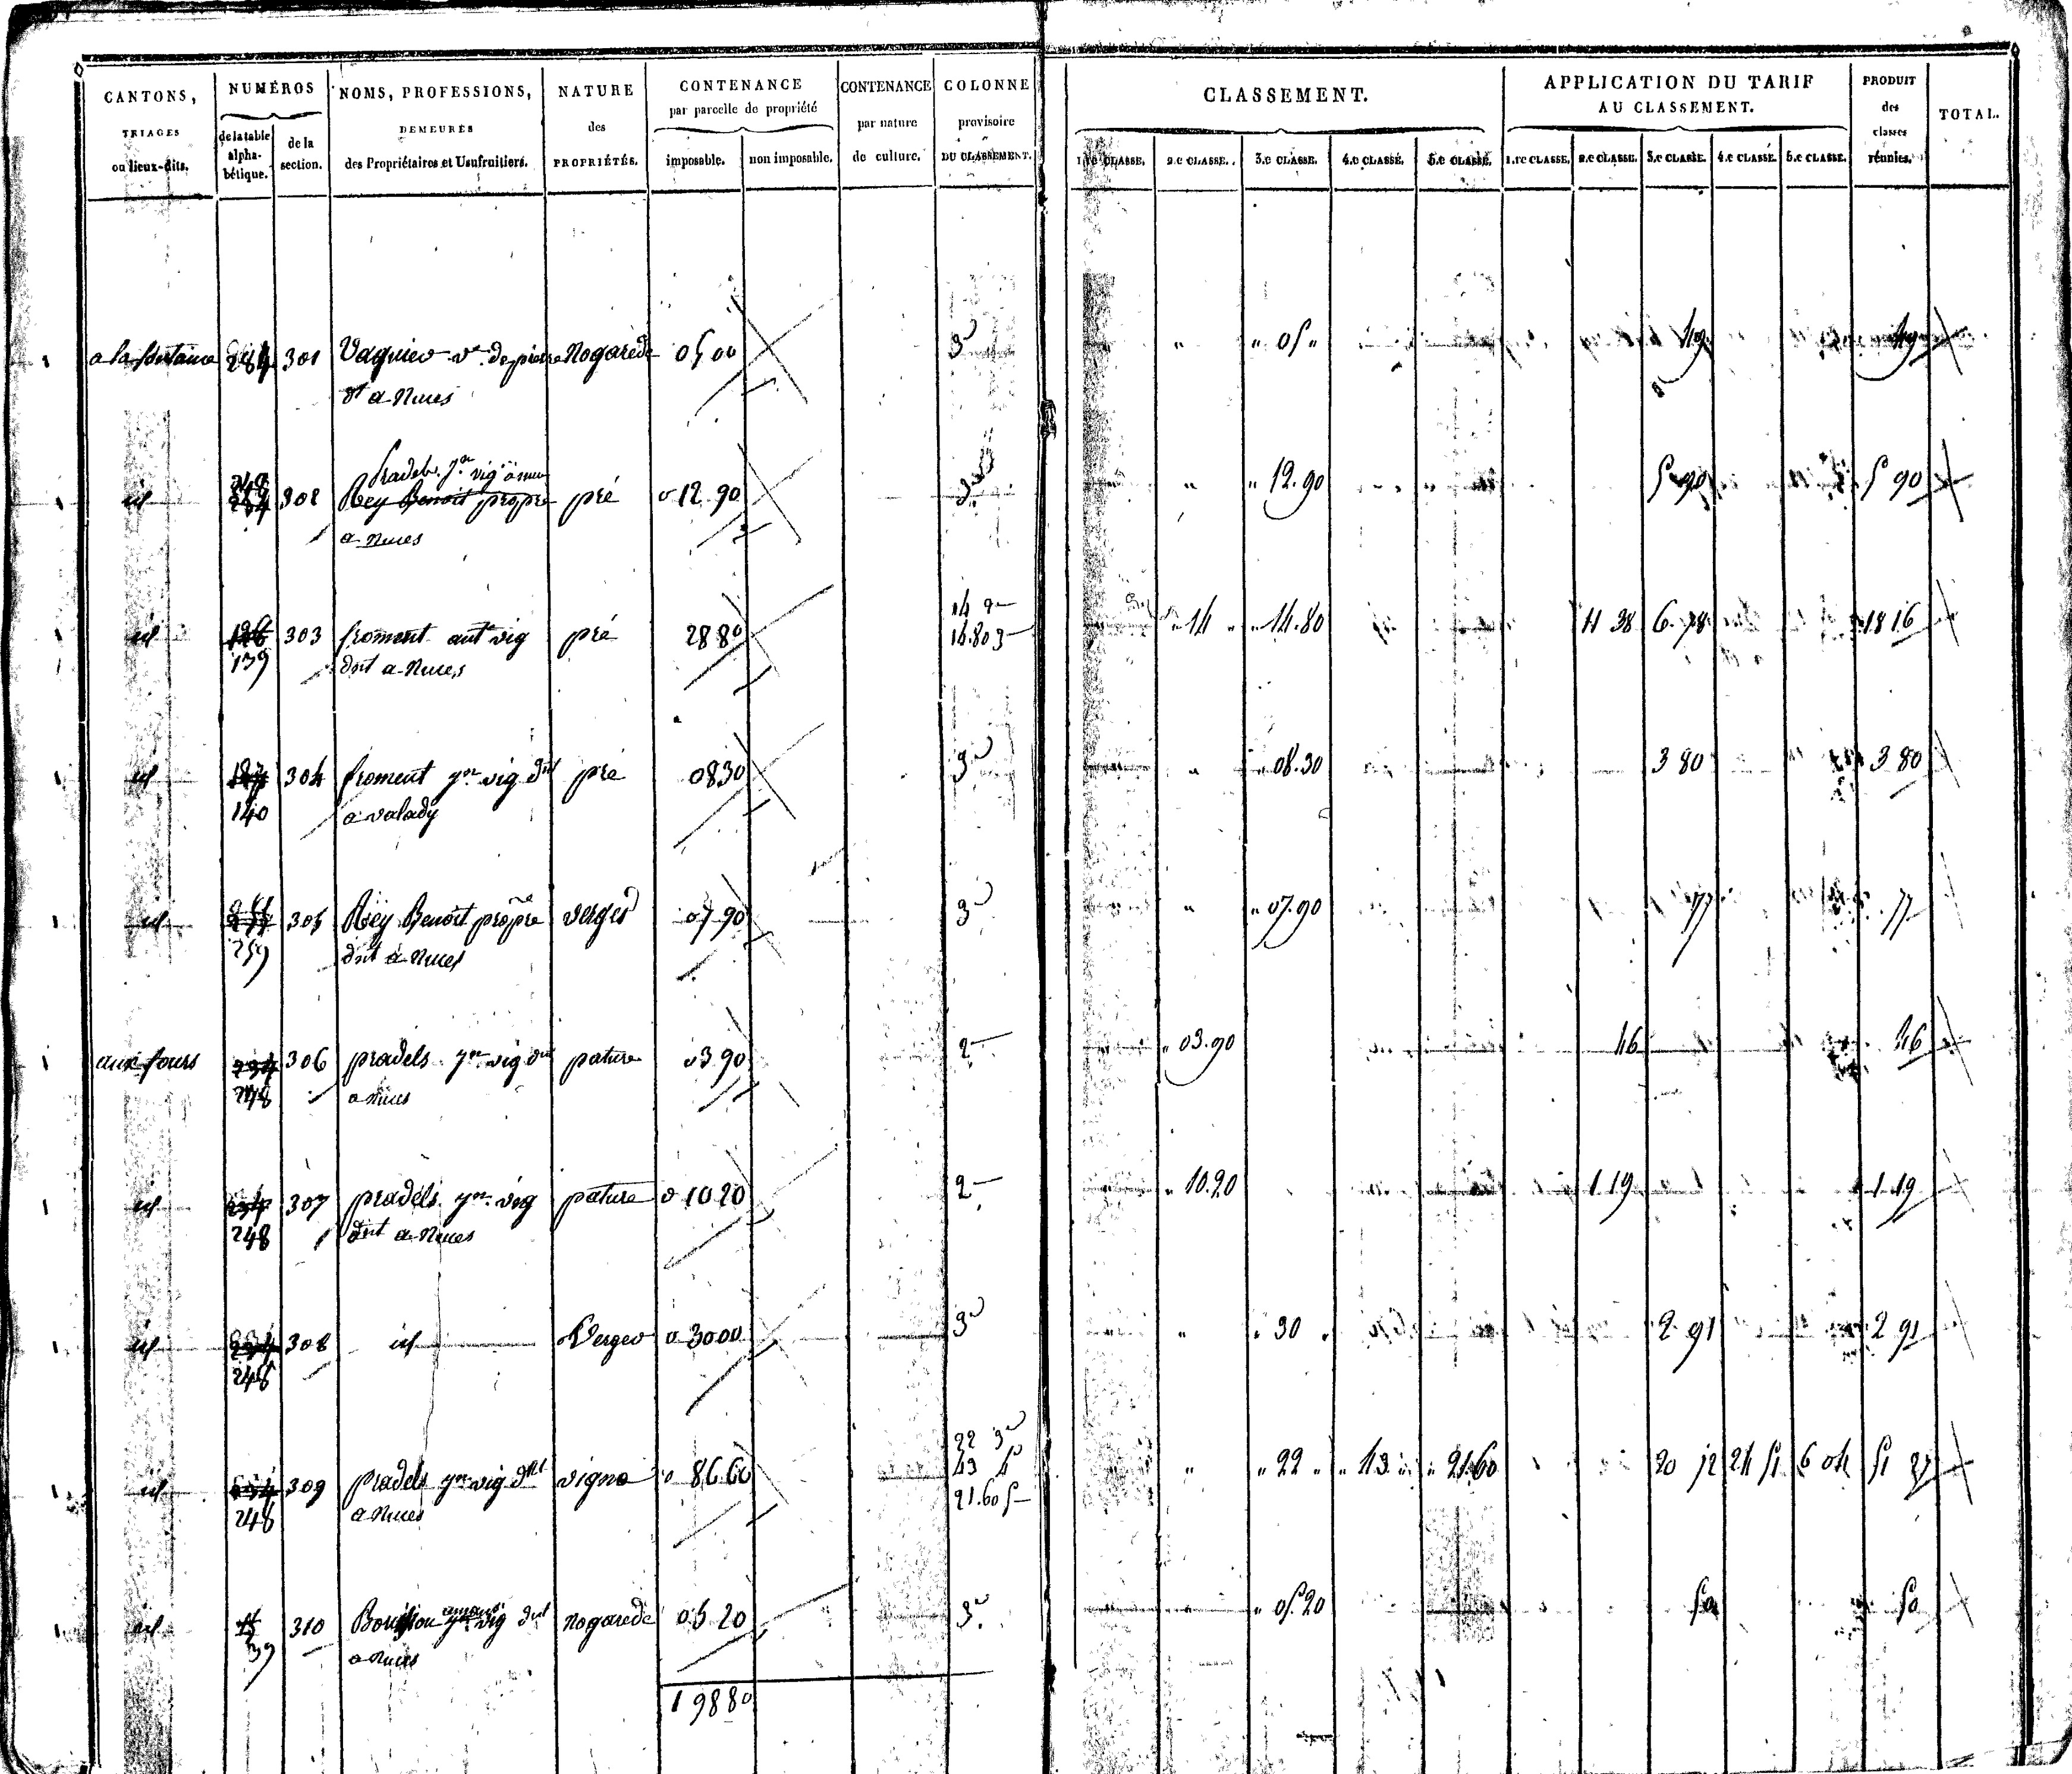 CANTONS, TRIAGES ou lieux-dits. | NUMÉROS de la table alphabétique. | de la section. | NOMS, PROFESSIONS, DEMEURES des Propriétaires et Usufruitiers. | NATURE des PROPRIÉTÉS. | CONTENANCE par parcelle de propriété imposable. | non imposable. | CONTENANCE par nature de culture. | COLONNE provisoire DU CLASSEMENT. | CLASSEMENT. 1.re CLASSE. 2.e CLASSE. 3.e CLASSE. 4.e CLASSE. 5.e CLASSE. | APPLICATION DU TARIF AU CLASSEMENT. 1.re CLASSE. 2.e CLASSE. 3.e CLASSE. 4.e CLASSE. 5.e CLASSE. | PRODUIT des classes réunies. | TOTAL.
a la fontaine 284 301 Vaquier ve de pierre Nogarede 05 00 3e " " 05 " 49 49
dt a Nuces
Pradels jn vig a nuces
id 302 Rey Benoit propre pré 0 12 90 3e " " 12.90 5 90 5 90
a Nuces
14 2e
id 126 303 froment ant vig pré 28 80 14.80 3e " 14 " " 14.80 11 38 6.78 18 16
139 dnt a Nuces
id 127 304 froment jn vig dnt pré 08 30 3e " " 08.30 3 80 3 80
140 a valady
id 305 Rey Benoit propre verger 07 90 3e " " 07.90 77 77
259 dnt a Nuces
aux fours 234 306 pradels jn vig dnt pature 03 90 2e " 03.90 46 46
248 a Nuces
id 234 307 pradels jn vig pature 0 10 20 2e " 10.20 1 19 1 19
248 dnt a Nuces
id 234 308 id Verger 0 30 00 3e " " 30 " 2 91 2 91
248
22 3e
id 234 309 pradels jn vig dnt vigne 0 86 60 43 4e " " 22 " " 43 " " 21.60 20 72 24 51 6 04 51 27
248 a Nuces 21.60 5e
id 310 jn vig dnt Nogarede 05 20 3e " " 05.20 50 50
39 a Nuces
1 98 80